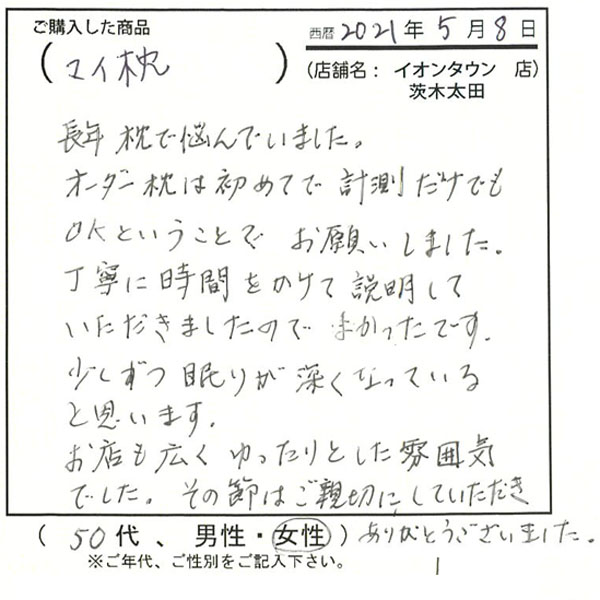 ご購入した商品
西暦 2021年 5月 8日
( マイ枕 )
(店舗名: イオンタウン 店)
茨木太田
長年 枕で悩んでいました。
オーダー枕は初めてで 計測だけでも
OKということで お願いしました。
丁寧に時間をかけて 説明して
いただきましたので よかったです。
少しずつ 眠りが 深くなっている
と思います。
お店も広く ゆったりとした雰囲気
でした。その節はご親切にしていただき
( 50代 、 男性・女性 ) ありがとうございました。
※ご年代、ご性別をご記入下さい。